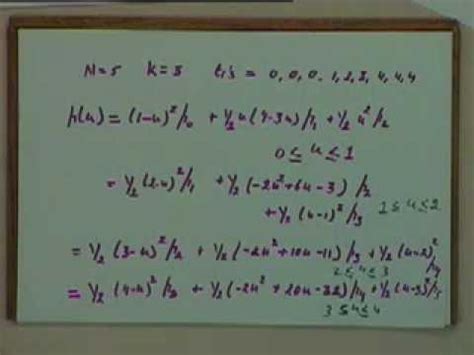 N=5 K=3 ti's = 0, 0, 0. 1, 2, 3, 4, 4, 4
p(u) = (1-u)² p₀ + ½ u(4-3u) p₁ + ½ u² p₂
0 ≤ u ≤ 1
= ½ (2-u)² p₁ + ½ (-2u²+6u-3) p₂
+ ½ (u-1)² p₃ 1 ≤ u ≤ 2
= ½ (3-u)² p₂ + ½ (-2u²+10u-11) p₃ + ½ (u-2)² p₄
2 ≤ u ≤ 3
= ½ (4-u)² p₃ + ½ (-2u²+20u-32) p₄ + ½ (u-3)² p₅
3 ≤ u ≤ 4